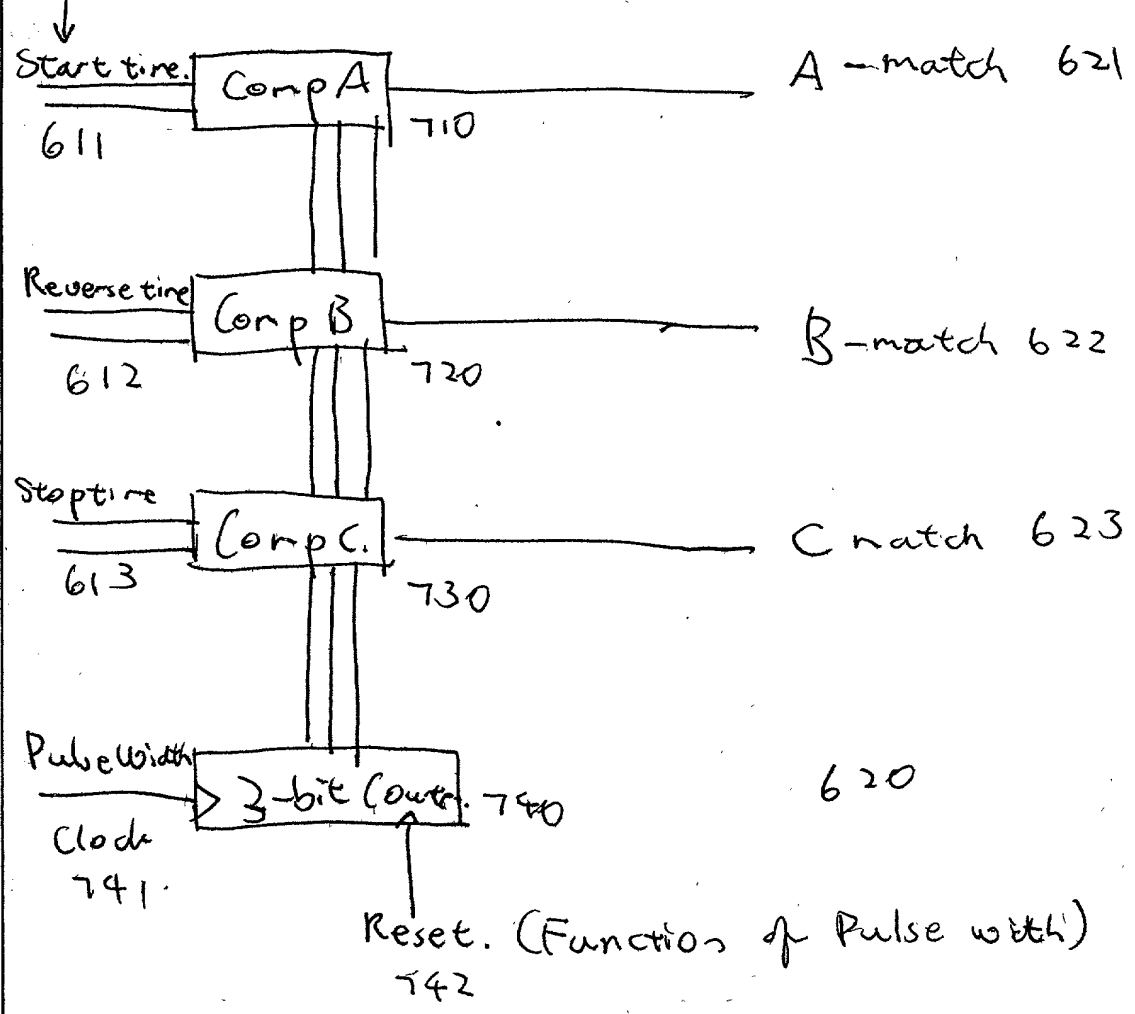 Start time.
Comp A
A-match 621
611
710
Reverse time
Comp B
B-match 622
612
720
Stop time
Comp C.
C match 623
613
730
Pulse Width
3-bit Counter.
740
620
Clock
741.
Reset. (Function of Pulse width)
742